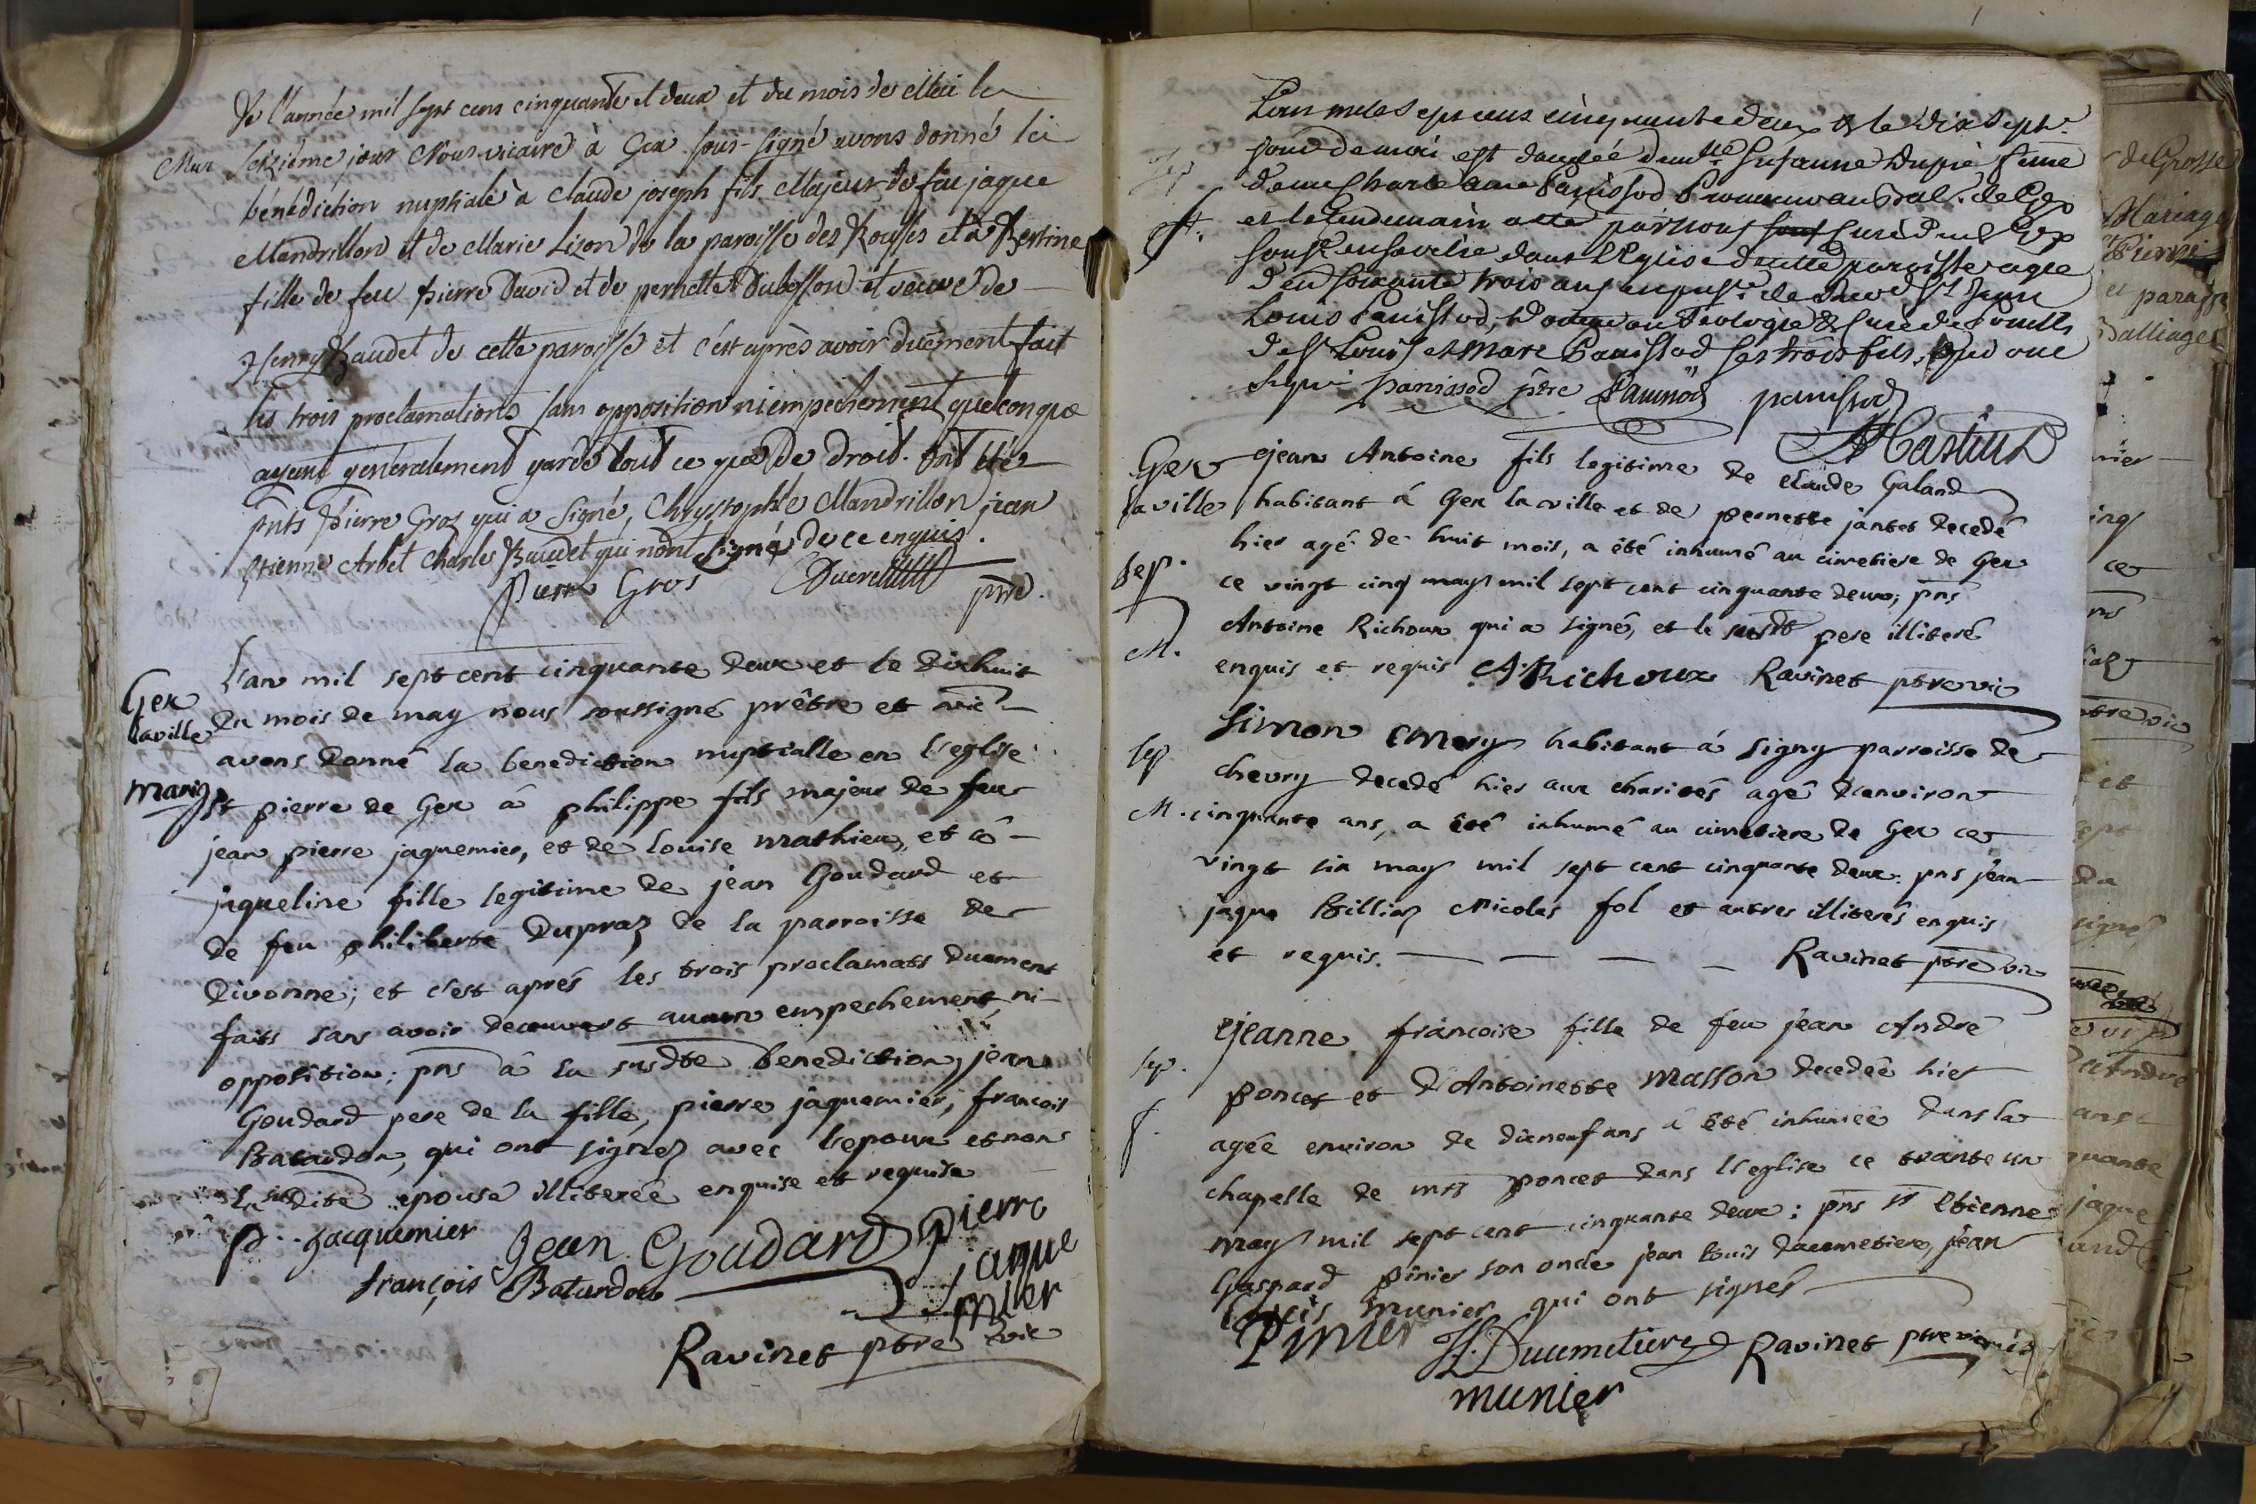 De l'année mil sept cens cinquante et deux et du mois de Mai le
Mar seizième jour Nous vicaire à Gex sous-signé avons donné la
bénédiction nuptiale à Claude joseph fils Majeur de feu jaque
Mandrillon et de Marie Lizon de la paroisse des Rousses et à Bertine
fille de feu Pierre David et de pernette Dubosson et veuve de
Henry Baudet de cette paroisse et c'est après avoir duement fait
les trois proclamations sans opposition ni empechement quelconque
ayant généralement gardé tout ce que de droit. Ont été
pnts Pierre Gros qui a signé, Chrystophle Mandrillon jean
Etienne Arbet Charles Baudet qui n'ont signé de ce enquis.
Pierre Gros Ducret ptre.
Gex
la ville
mariag
L'an mil sept cent cinquante deux et le dixhuit
du mois de may nous soussigné prêtre et vic
avons donné la benediction nuptialle en l'eglise
st pierre de Gex à philippe fils majeur de feu
jean pierre jaquemier, et de louise mathieu, et à
jaqueline fille legitime de jean Goudard et
de feu philiberte Dupraz de la parroisse de
Divonne; et c'est aprés les trois proclamats duement
faits sans avoir decouvert aucun empechement, ni
opposition; pns à la susdte benediction, jean
Goudard pere de la fille, pierre jâquemier, francois
Batardon, qui ont signez avec l'epoux et non
la susdite epouse illiterée enquise et requise
p. Jacquemier Jean Goudard pierre
jaque
mier
françois Batardon
Ravinet ptre vic
L'an mil sept cens cinquante deux & le dix sept
jour de mai est decedée dem.lle Susanne Dupré feme
et le lendemain par nous Curé de Gex
souse ensevelie dans l'Eglise de cette paroisse agée
d'en soixante trois ans en puse de Rev.d S.r Jean
Louis Panissod, Docteur en Teologie & Curé de
des.rs Louis et Marc Panissod ses trois fils, qui ont
signé Panissod ptre Panissod panissod
Castin
Gex
la ville
sep.
M.
jean Antoine fils legitime de Claude Galand
habitant à Gex la ville et de pernette jantet decedé
hier agé de huit mois, a été inhumé au cimetiere de Gex
ce vingt cinq may mil sept cent cinquante deux; pns
Antoine Richoux qui a signé, et le susdt pere illiteré
enquis et requis A Richoux Ravinet ptre vic
sep
M.
Simon emery habitant à Signy parroisse de
chevry decedé hier aux charités agé d'environ
cinquante ans, a été inhumé au cimetiere de Gex ce
vingt six may mil sept cent cinquante deux. pns jean
jaque Billiaz Nicolas fol et autres illiterés enquis
et requis. Ravinet ptre vic
sep.
f.
jeanne francoise fille de feu jean André
poncet et D'Antoinette Masson decedée hier
agée environ de dixneuf ans a été inhumée dans la
chapelle de mrs poncet dans l'eglise ce trante un
may mil sept cent cinquante deux; pns sr Etienne
Gaspard pinier son oncle jean louis ducimetiere, jean
louis munier qui ont signés
Pinier JL. Ducimetiere Ravinet ptre vicaire
munier